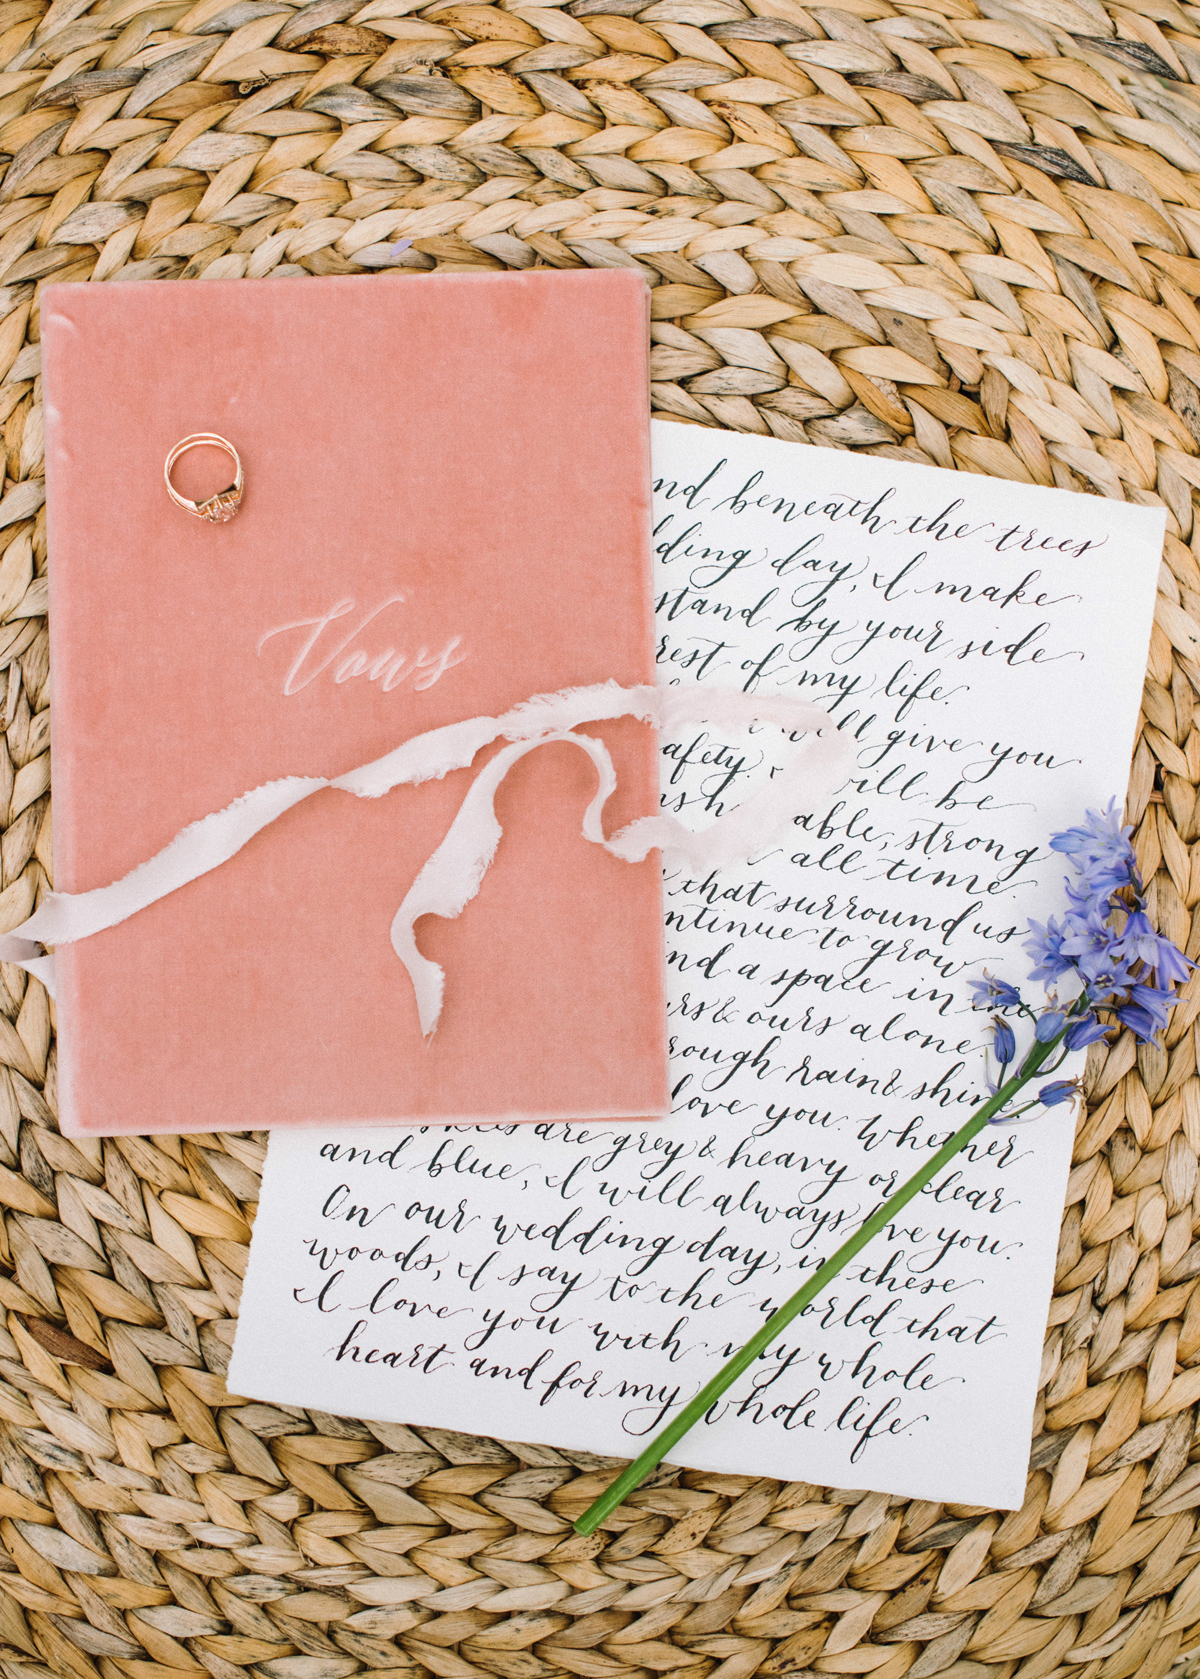 Vows
beneath the trees
day, I make
stand by your side
rest of my life.
will give you
will be
able, strong
all time.
that surround us
to grow
a space in me
& ours alone.
rain & shine
love you. Whether
are grey & heavy or clear
and blue, I will always love you.
On our wedding day, in these
woods, I say to the world that
I love you with my whole
heart and for my whole life.